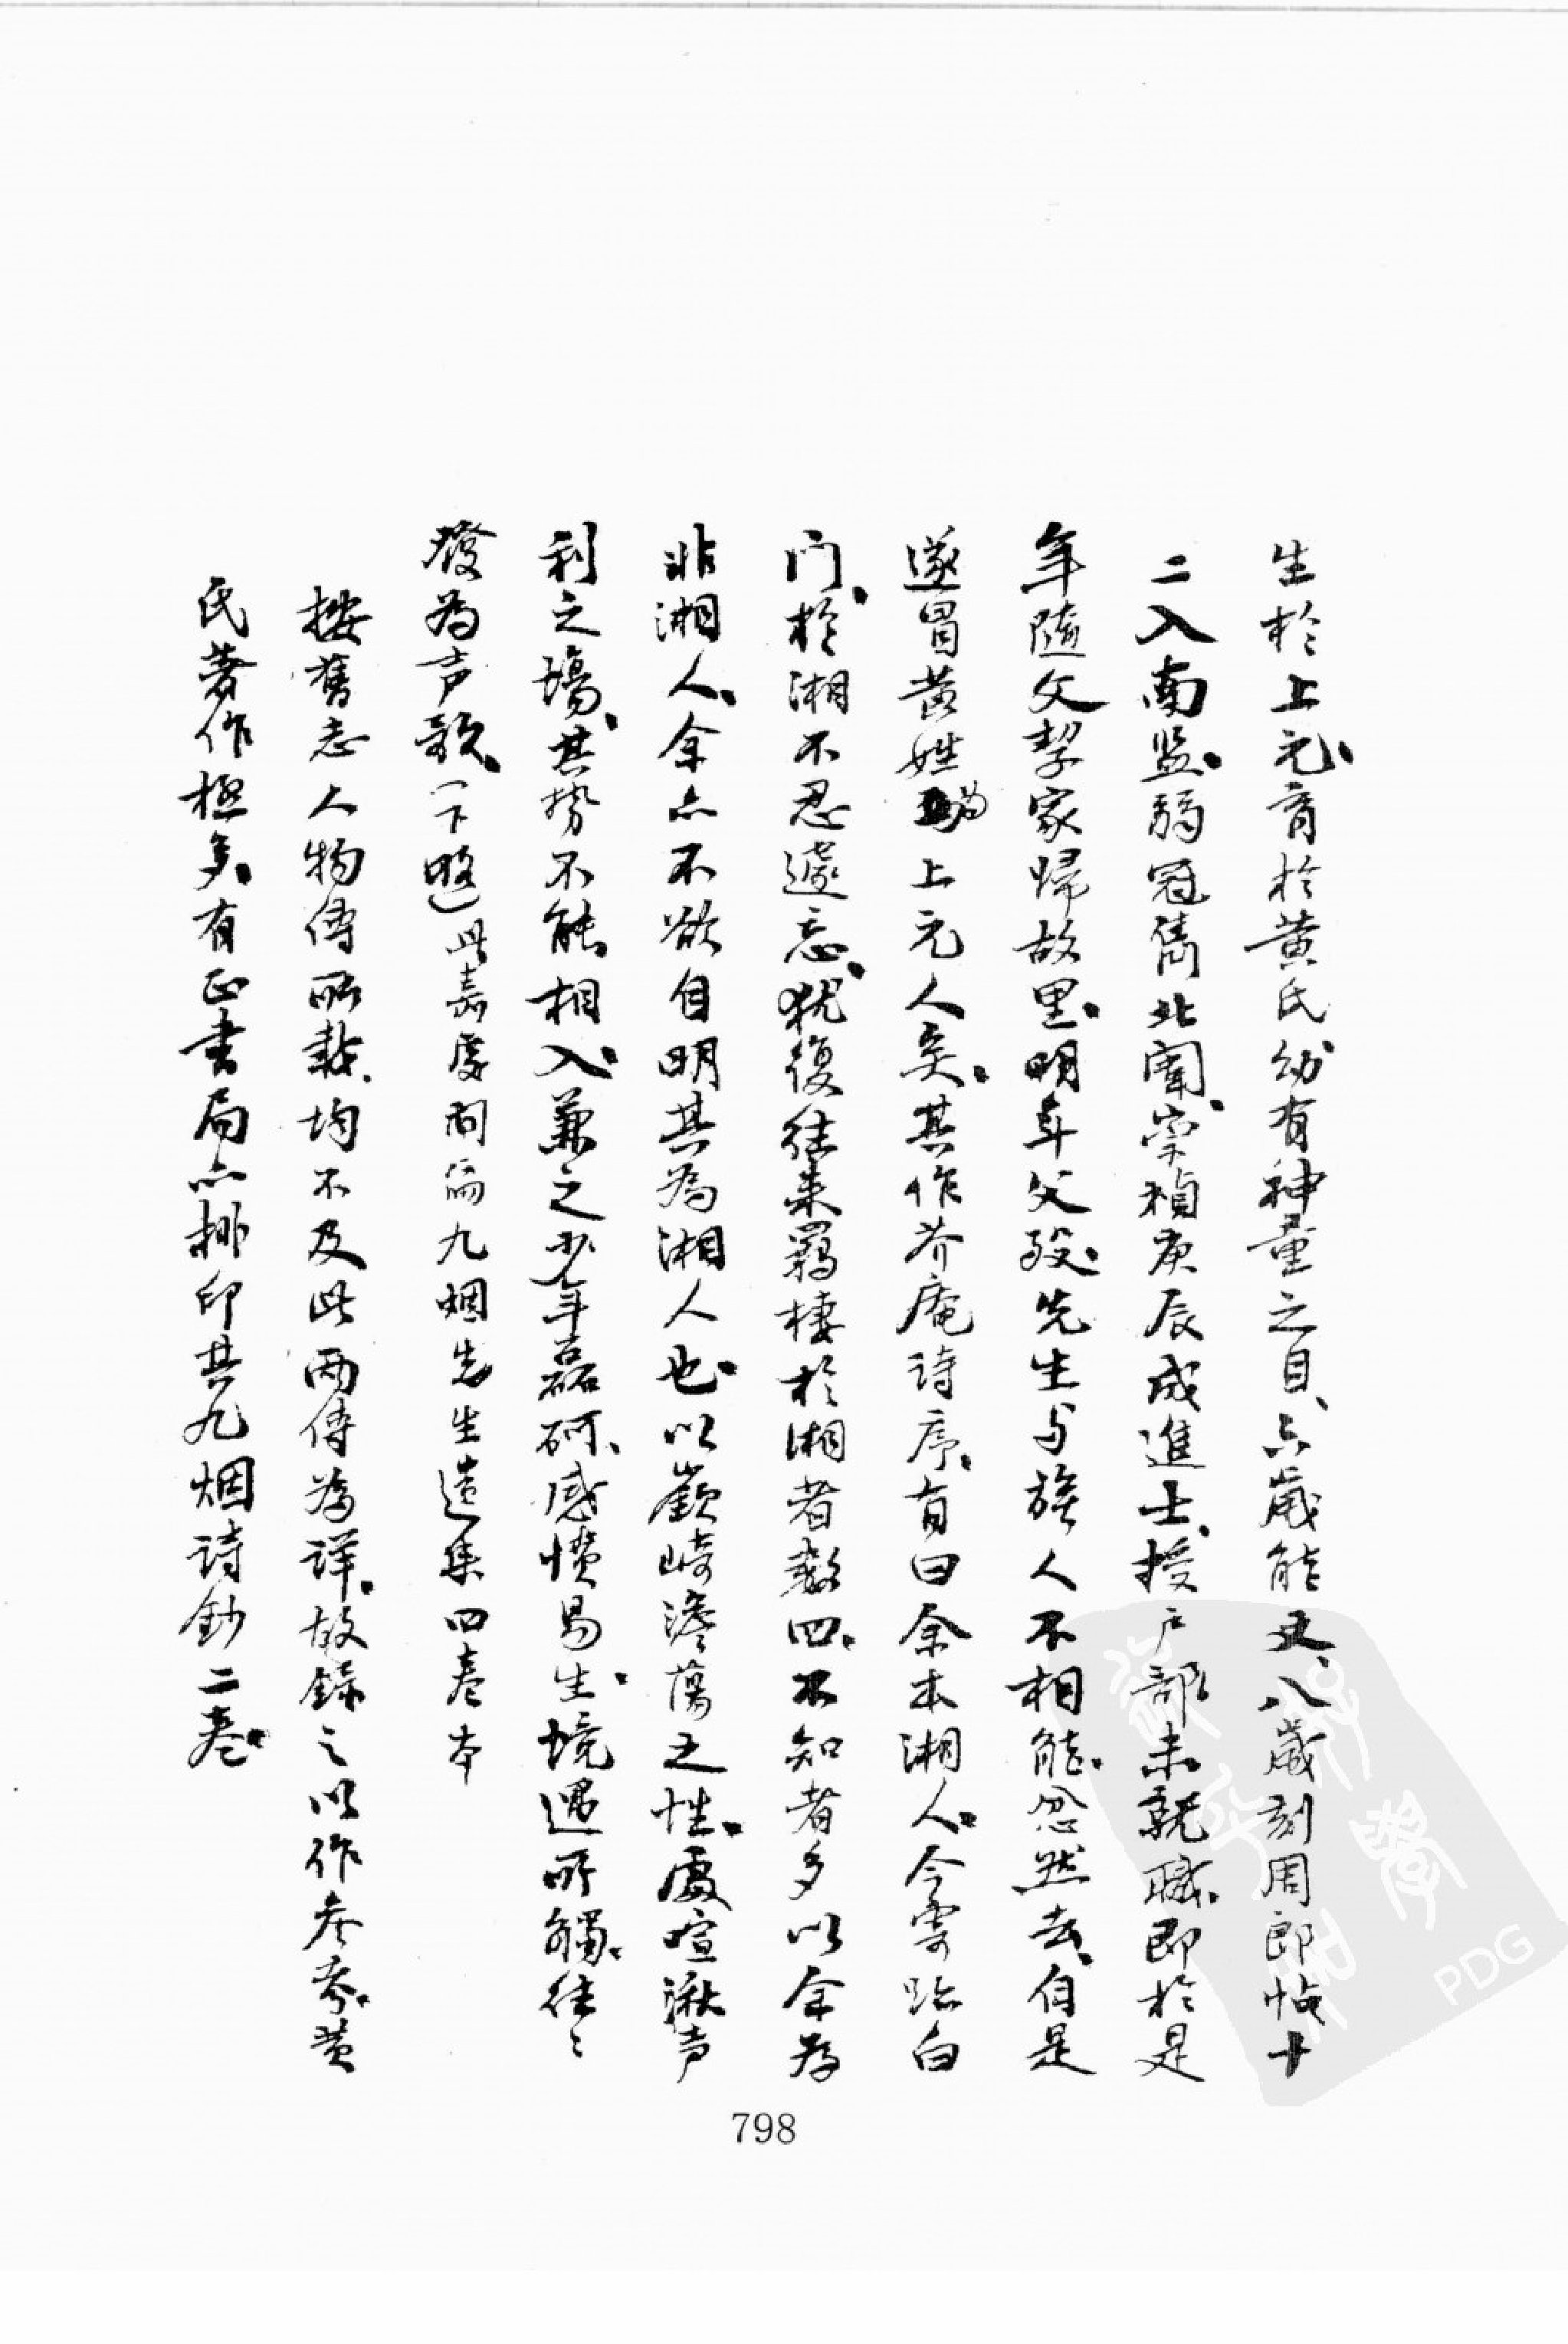 生於上元、育於黄氏幼有神童之目、六歲能文、八歲刻周郎帖十
二入南监、弱冠雋北闈、崇禎庚辰成進士、授户部未就職、即於是
年隨父挈家歸故里、明年父殁、先生与族人不相能、忿然去、自是
遂冒黄姓為上元人矣、其作芥庵詩序、有曰余本湘人、今寄跡白
门、於湘不忍遽忘、犹復往来羁棲於湘者数四、不知者多以余為
非湘人、余亦不欲自明其為湘人也、以嶔崎澹蕩之性、處喧湫声
利之場、其势不能相入、兼之少年磊砢、感愤易生、境遇所觸、往〻
發為声歌、（下略）此嘉慶間 九烟先生遺集四卷本
按舊志人物傳所載、均不及此两傳為詳、故錄之以作参考、黄
氏著作極多、有正書局亦排印其九烟詩鈔二卷、
798
PDG